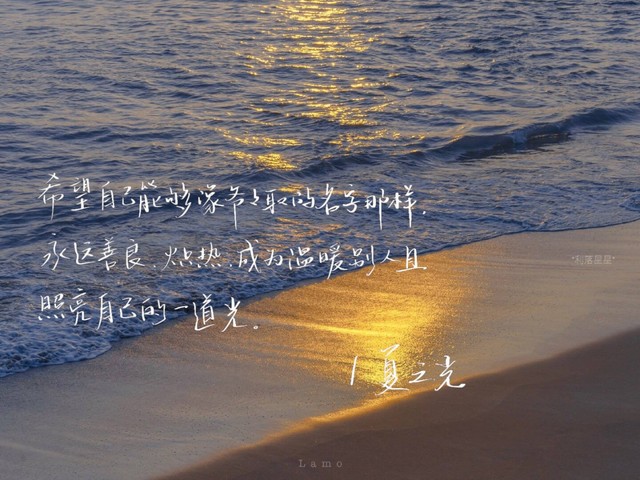 希望自己能够像爷爷取的名字那样，
永远善良、炽热，成为温暖别人且
照亮自己的一道光。
/ 夏之光
*利落是是*
Lamo